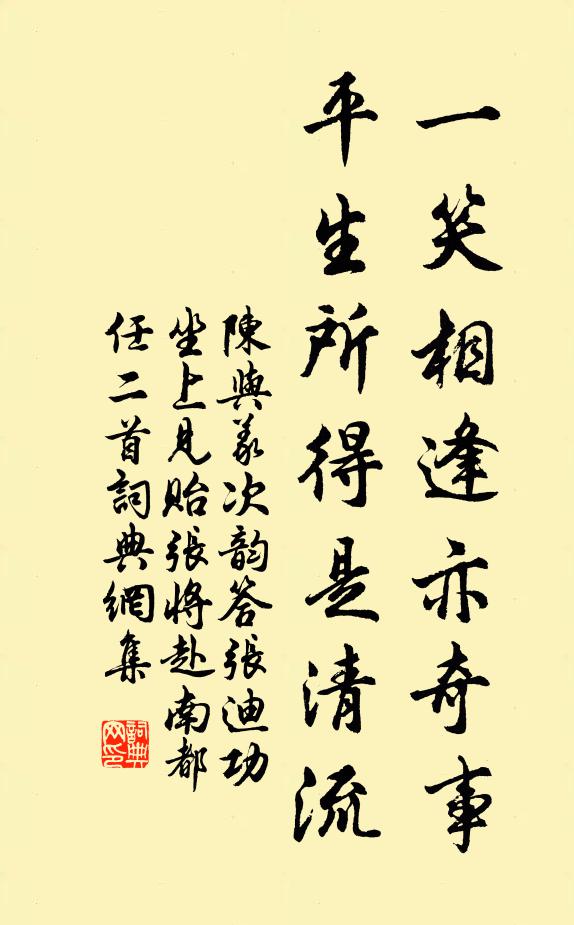 一笑相逢亦奇事
平生所得是清流
陳與義次韵答張迪功
坐上見貽張將赴南都
任二首詞典網集
詞典網印